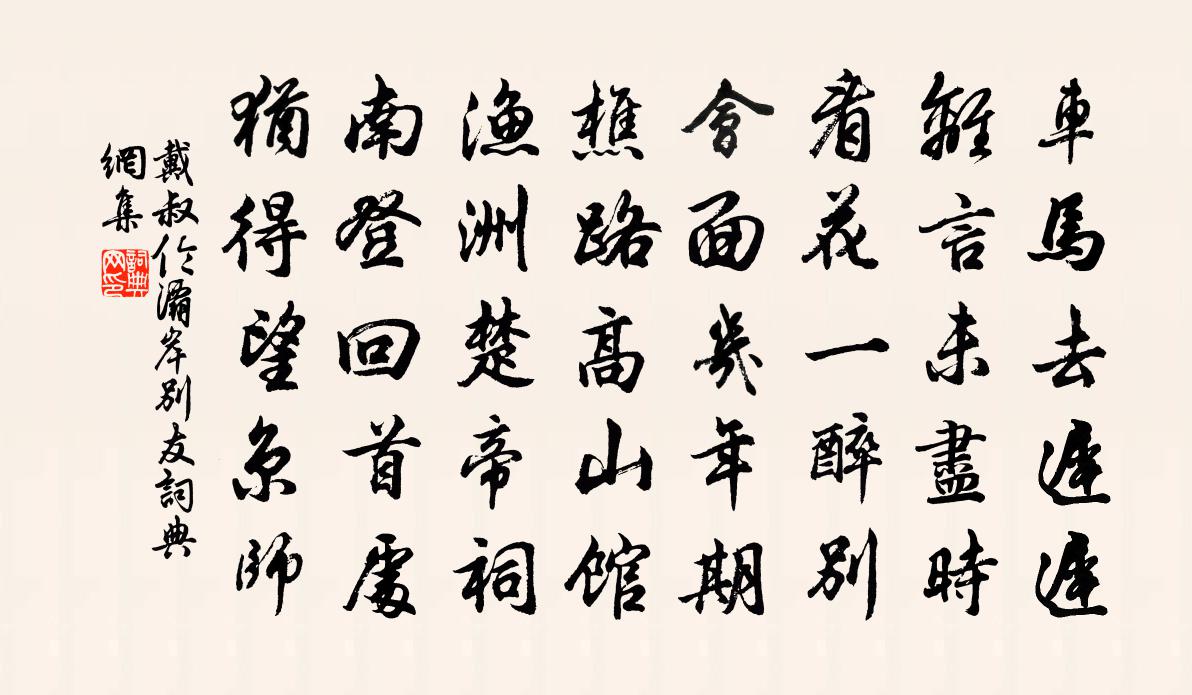 車馬去遲遲
離言未盡時
看花一醉別
會面幾年期
樵路高山館
漁洲楚帝祠
南登回首處
猶得望京師
戴叔倫灞岸別友詞典
網集
詞典
网印